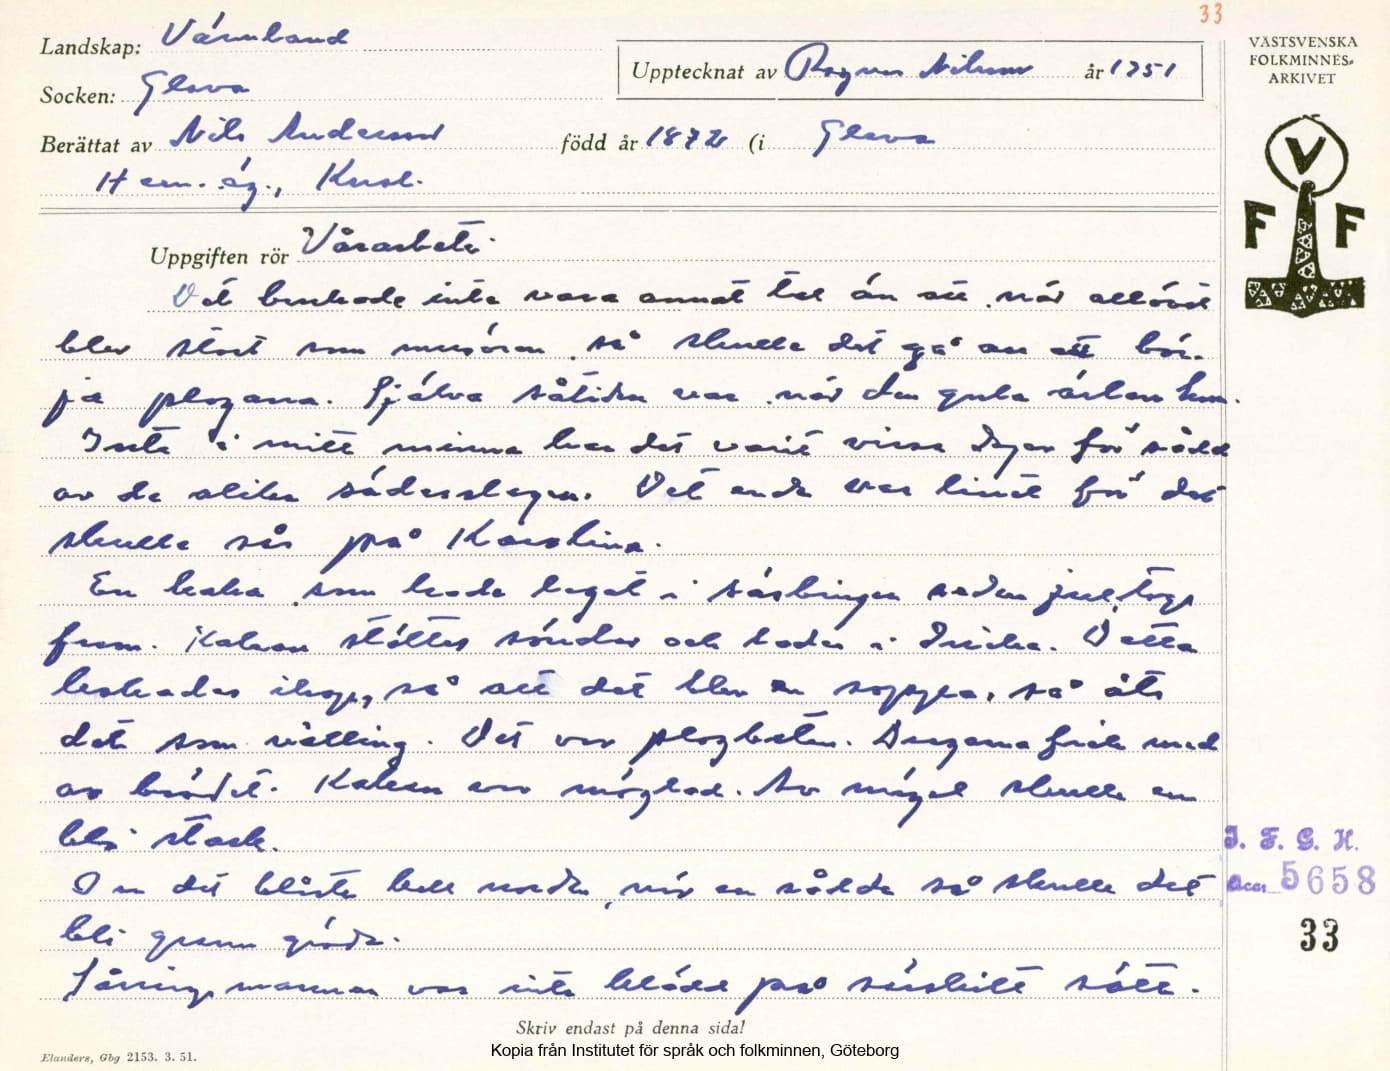 33
Landskap: Värmland
Upptecknat av Ragnar Nilsson år 1951
VÄSTSVENSKA
FOLKMINNES-
ARKIVET
Socken: Glava
Berättat av Nils Andersson född år 1872 (i Glava
Hem.äg.,
V
F F
Uppgiften rör Vårarbete.
Det brukade inte vara annat tal än att när allövet
blev stort som musöron så skulle det gå an att bör-
ja plogarna. Själva såtiden var när den gula ärlan kom.
Inte i mitt minne har det varit vissa dagar för sådd
av de olika sädesslagen. Det enda var linet för det
skulle sås på Karolina.
En kaka som hade legat i såsbingen sedan jul, togs
fram. Kakan stöttes sönder och lades i dricka. Detta
kokades ihop, så att det blev en soppa, så åts
det som välling. Det var plogbeten. Dragarna fick med
av brödet. Kakan var möglad. Av mögel skulle en
bli stark.
Om det blåste kall norden när en sådde så skulle det
bli grann gröda.
Såningsmannen var inte klädd på särskilt sätt.
Skriv endast på denna sida!
Elanders, Gbg 2153. 3. 51.
Kopia från Institutet för språk och folkminnen, Göteborg
I. F. G. H.
Acc. 5658
33